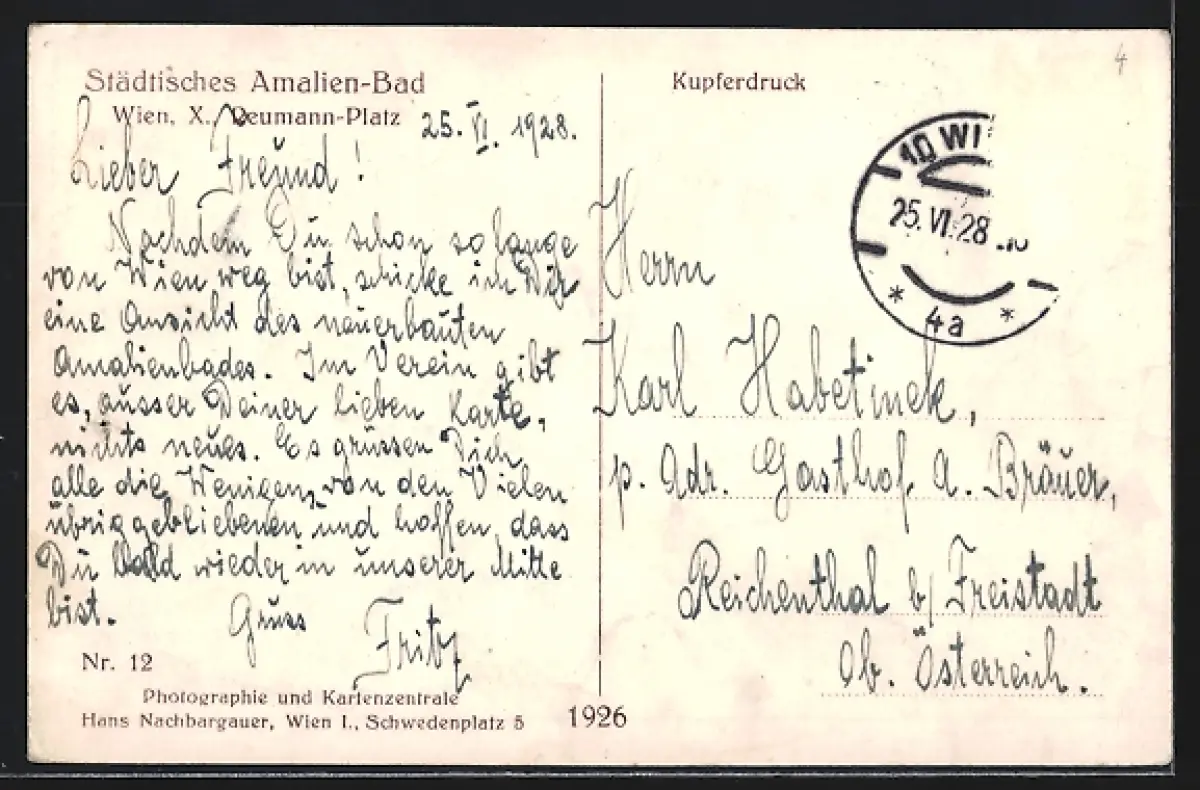 Städtisches Amalien-Bad
Wien, X., Reumann-Platz
25. VI. 1928.
Lieber Freund!
Nachdem Du schon so lange
von Wien weg bist, schicke ich Dir
eine Ansicht des neuerbauten
Amalienbades. Im Verein gibt
es, ausser Deiner lieben Karte,
nichts neues. Es grüssen Dich
alle die Wenigen, von den Vielen
übriggebliebenen und hoffen, dass
Du bald wieder in unserer Mitte
bist.
Gruss
Fritz
Nr. 12
Photographie und Kartenzentrale
Hans Nachbargauer, Wien I., Schwedenplatz 5
1926
Kupferdruck
4
10 WI
25.VI.28
* 4a *
Herrn
Karl Habetinek,
p. Adr. Gasthof A. Bräuer,
Reichenthal b/ Freistadt
Ob. Österreich.